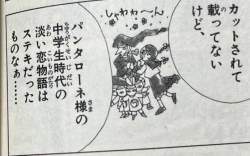 カットされて
載ってない
けど、
しゅわわ〜ん
パンタローネ様の
中学生時代の
淡い恋物語は
ステキだった
ものなぁ……